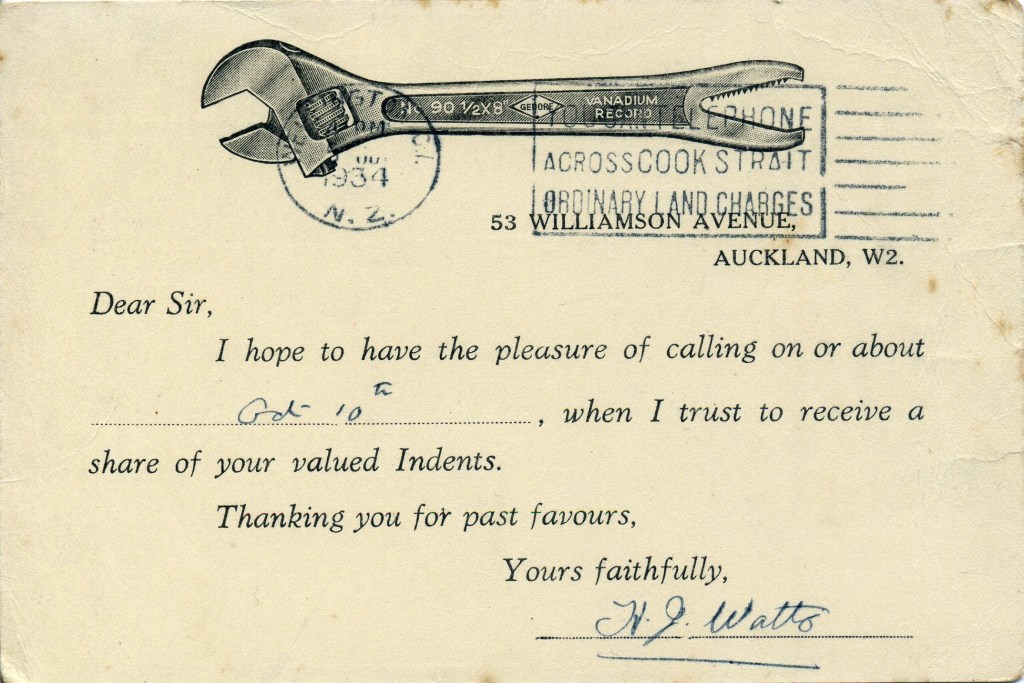 No 90 1/2X8" GEDORE VANADIUM
RECORD
1934
N. Z.
YOU CAN TELEPHONE
ACROSS COOK STRAIT
ORDINARY LAND CHARGES
53 WILLIAMSON AVENUE,
AUCKLAND, W2.
Dear Sir,
I hope to have the pleasure of calling on or about
Oct 10th, when I trust to receive a
share of your valued Indents.
Thanking you for past favours,
Yours faithfully,
H. J. Watts